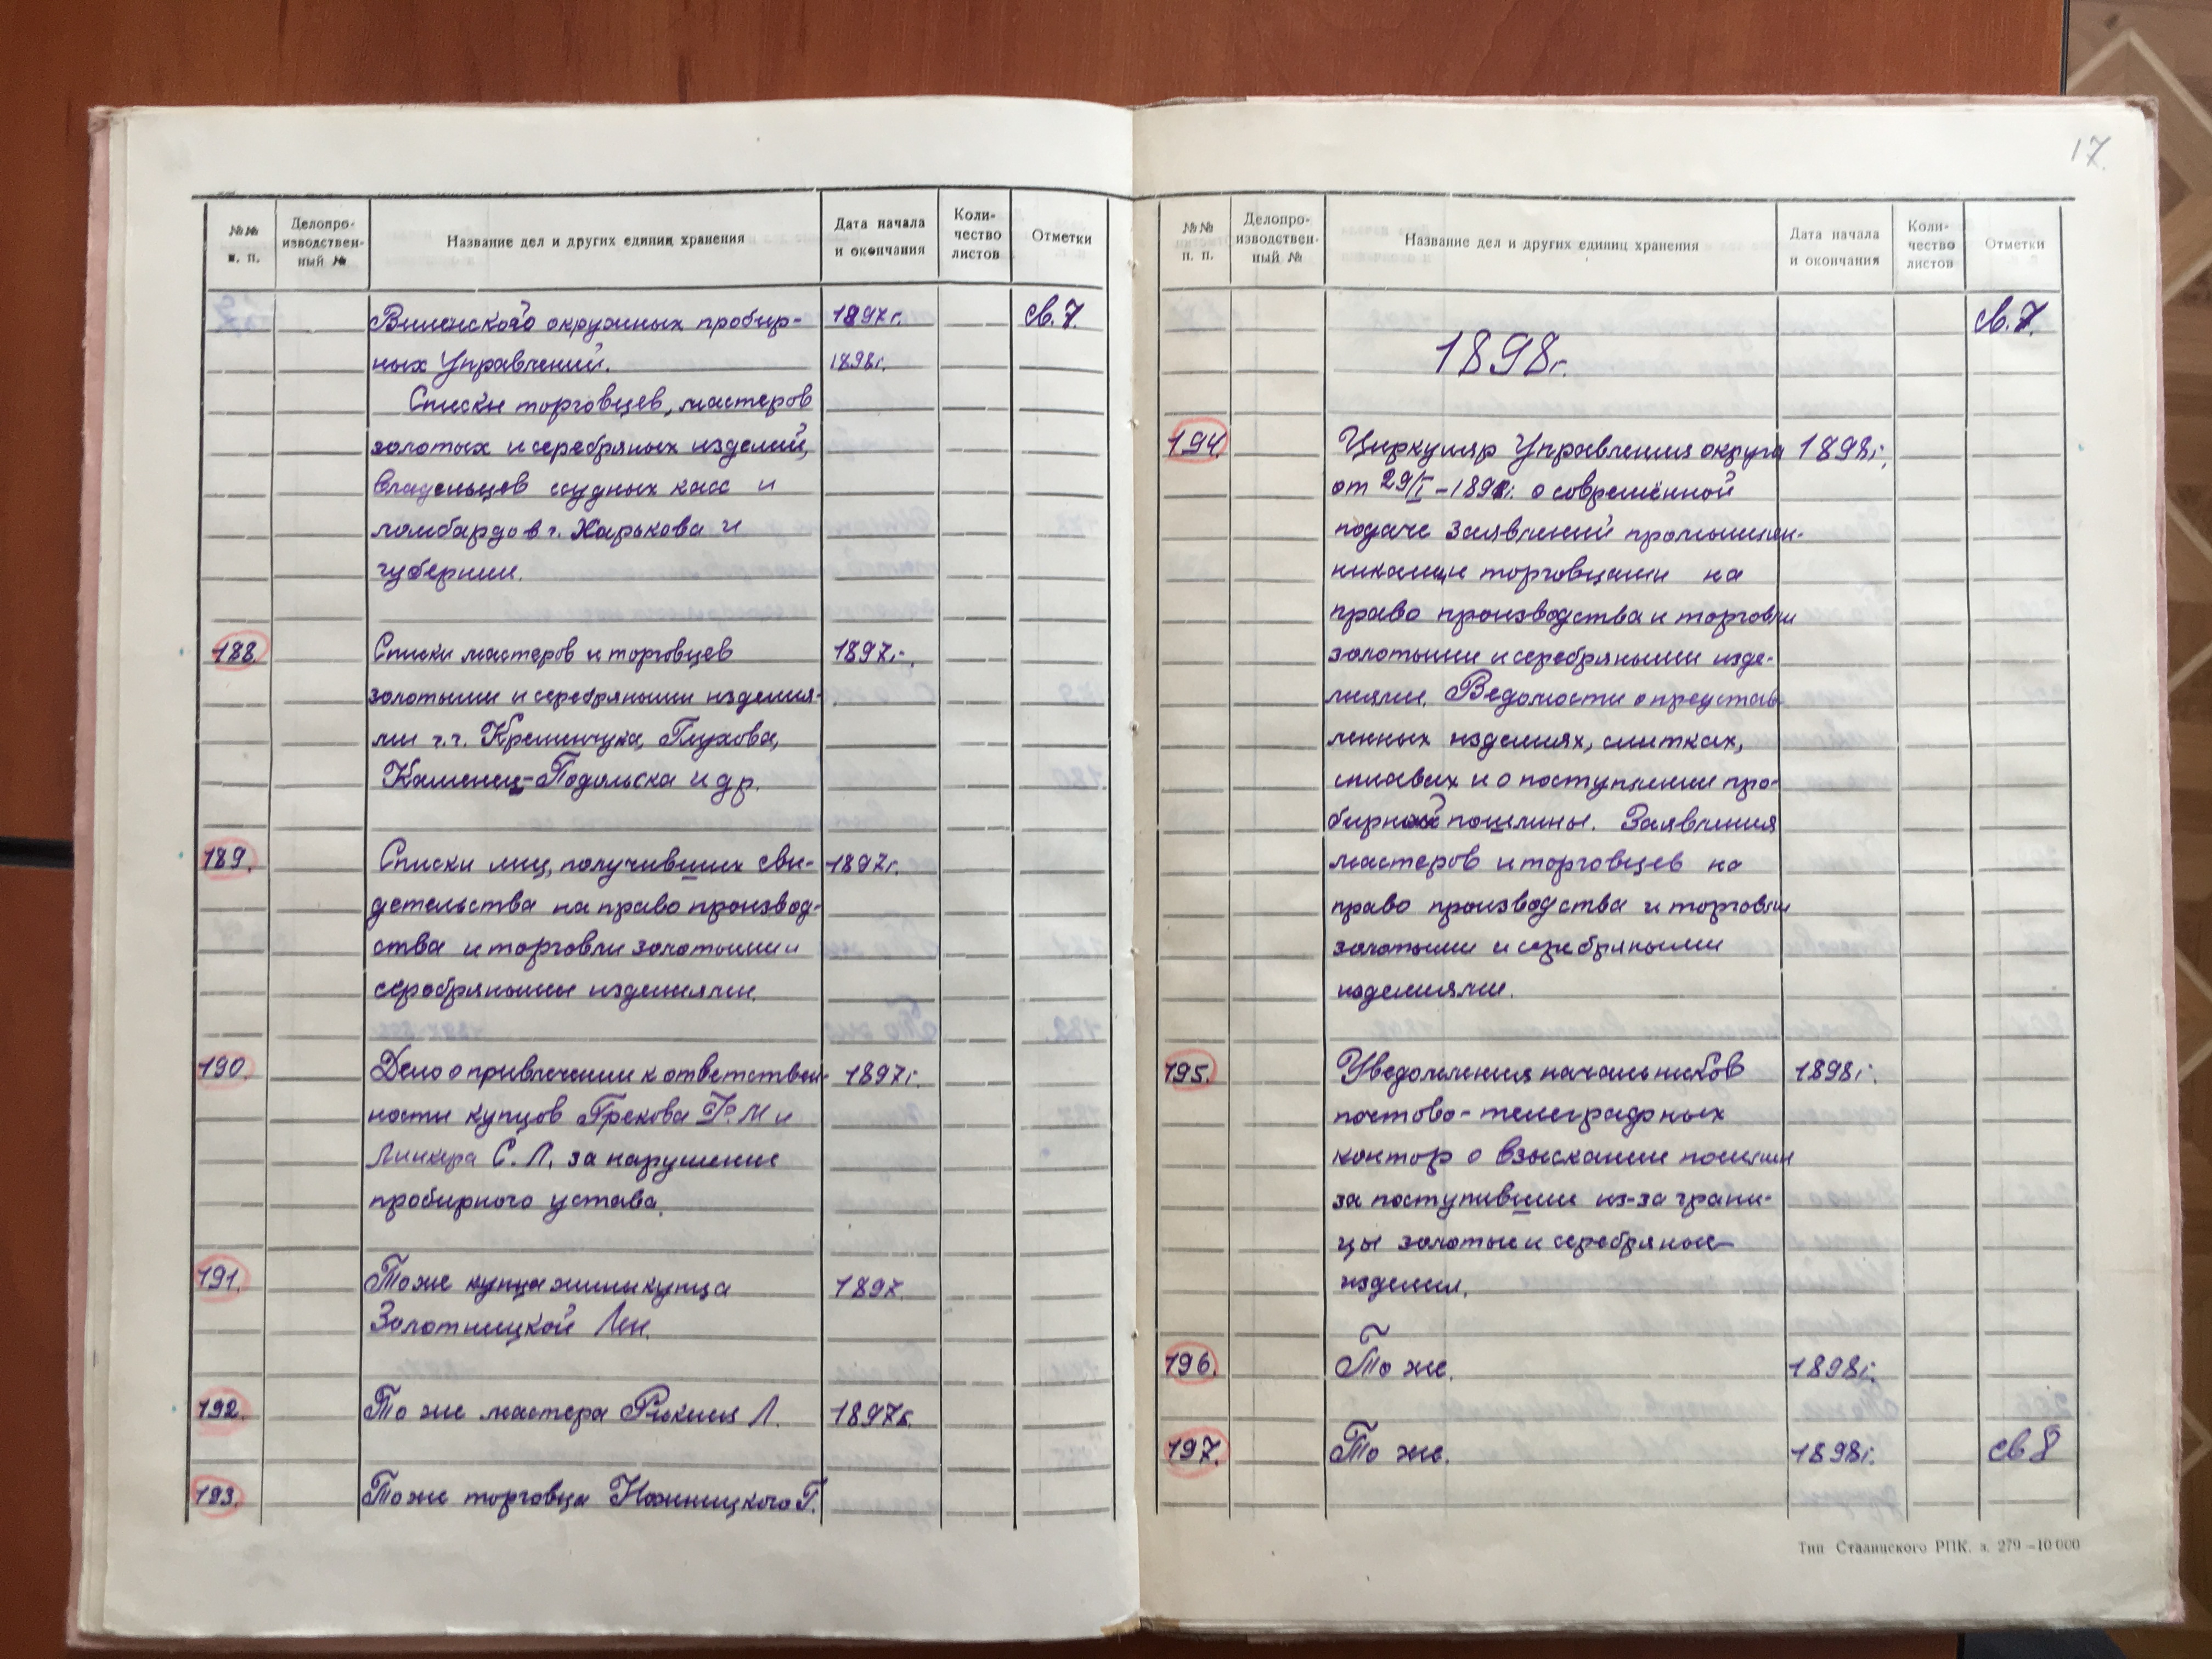 №№ п. п.
Делопро-
изводствен-
ный №
Название дел и других единиц хранения
Дата начала
и окончания
Коли-
чество
листов
Отметки
Виленского окружных пробир- 1897г. св. 7.
ных Управлений. 1898г.
Списки торговцев, мастеров
золотых и серебряных изделий,
владельцев ссудных касс и
ломбардов г. Харькова и
губернии.
188. Списки мастеров и торговцев 1897г.
золотыми и серебряными изделия-
ми г.г. Кременчуга, Глухова,
Каменец-Подольска и др.
189. Списки лиц, получивших сви- 1897г.
детельства на право производ-
ства и торговли золотыми и
серебряными изделиями.
190. Дело о привлечении к ответствен- 1897г.
ности купцов Грекова Ф. М и
Линкера С. Л. за нарушение
пробирного устава.
191. То же купца жены купца 1897.
Золотницкой
192. То же мастера Л. 1897г.
193. То же торговца Г.
17.
№№
п. п.
Делопро-
изводствен-
ный №
Название дел и других единиц хранения
Дата начала
и окончания
Коли-
чество
листов
Отметки
св. 7.
1898г.
194. Циркуляр Управления округа 1898г.
от 29/I-1898г. о современной
подаче заявлений промышлен-
никами торговцами на
право производства и торговли
золотыми и серебряными изде-
лиями. Ведомости о представ
ленных изделиях, слитках,
сплавах и о поступлении про-
бирной пошлины. Заявления
мастеров и торговцев на
право производства и торговли
золотыми и серебряными
изделиями.
195. Уведомления начальников 1898г.
почтово-телеграфных
контор о взыскании пошлин
за поступившие из-за грани-
цы золотые и серебряные
изделия.
196. То же. 1898г.
197. То же. 1898г. св 8
Тип Сталинского РПК. з. 279-10 000